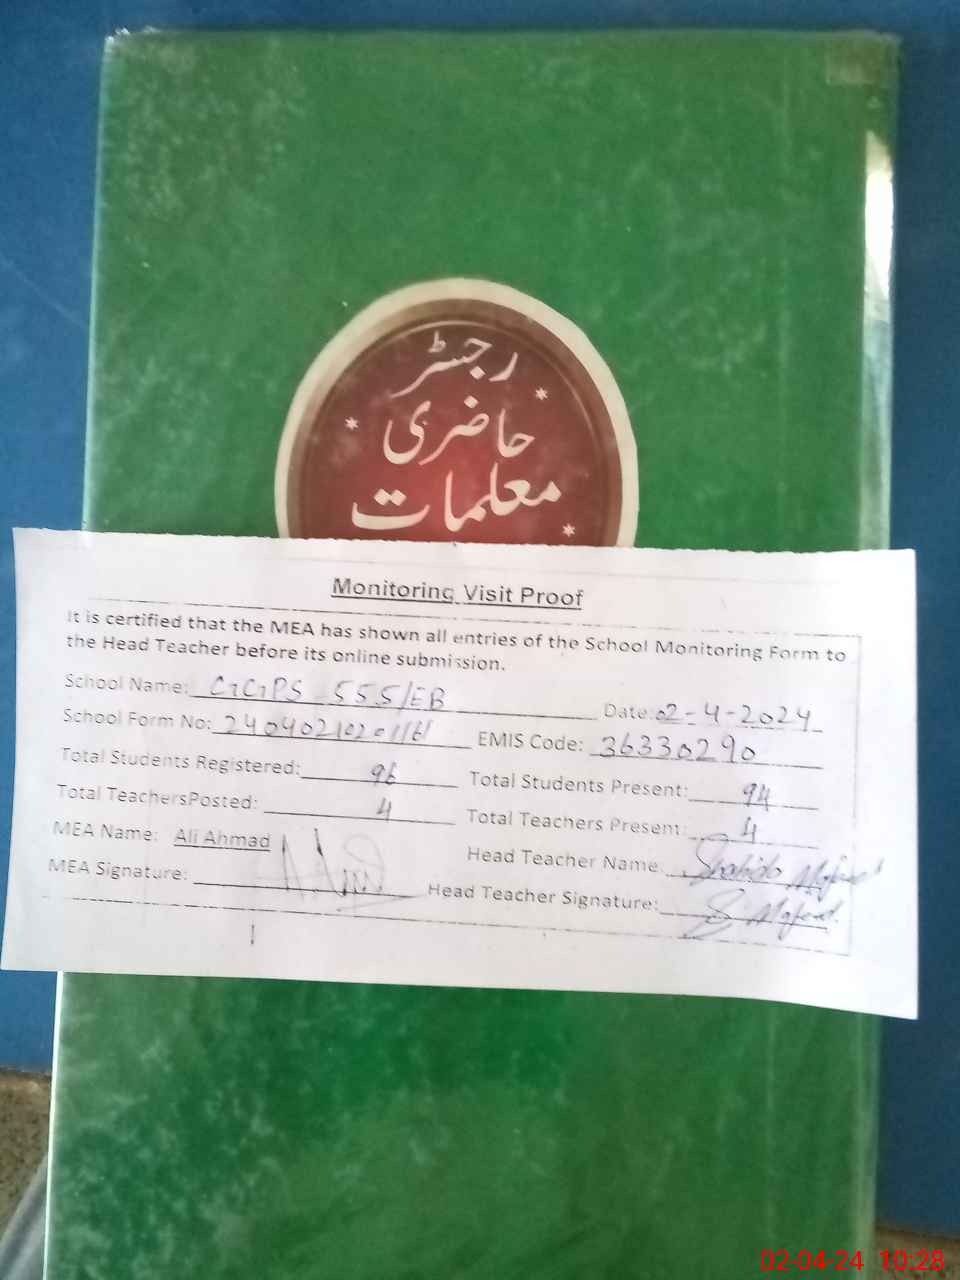 رجسٹر
حاضری
معلمات
Monitoring Visit Proof
It is certified that the MEA has shown all entries of the School Monitoring Form to
the Head Teacher before its online submission.
School Name: GGPS 555/EB Date: 02-4-2024
School Form No: EMIS Code: 36330290
Total Students Registered: 96 Total Students Present: 94
Total TeachersPosted: 4 Total Teachers Present: 4
MEA Name: Ali Ahmad Head Teacher Name: Shahida
MEA Signature: Head Teacher Signature:
02-04-24 10:28